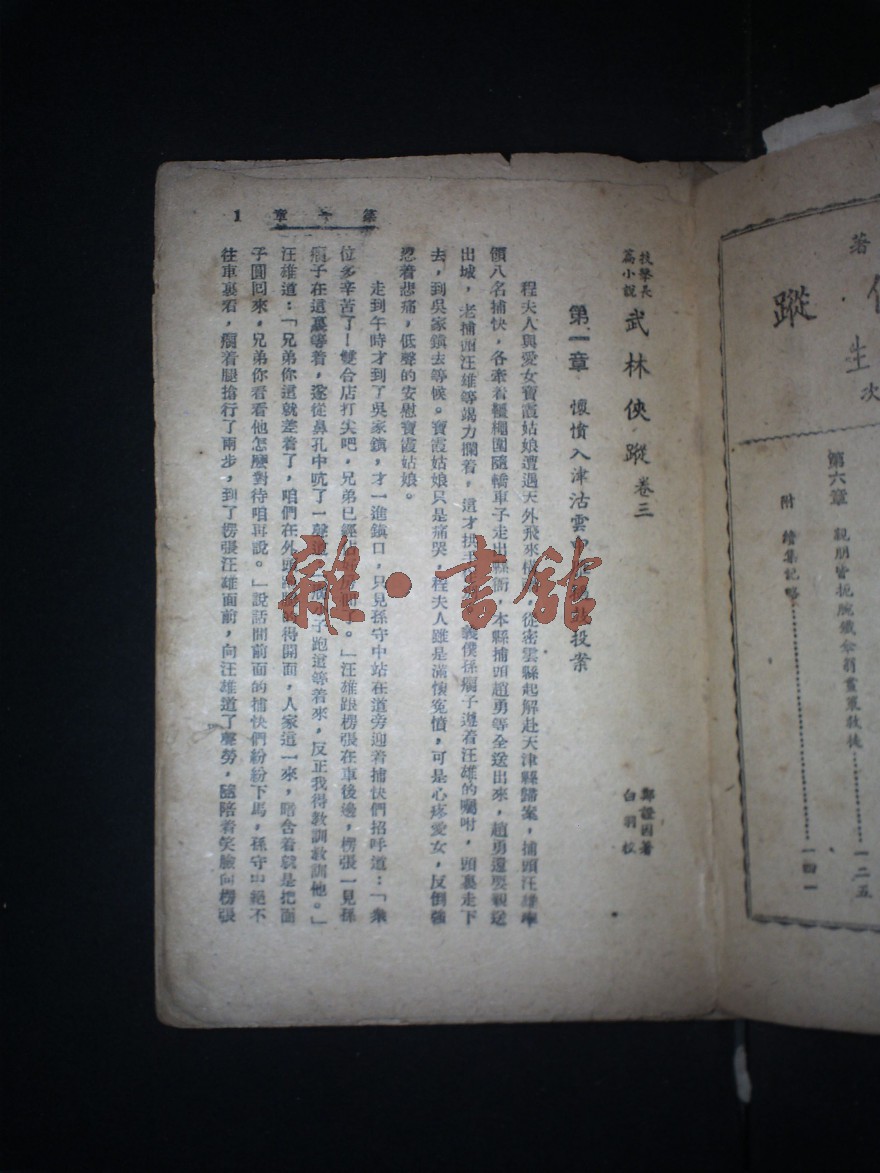 著
蹤
生
次
第六章 親朋皆扼腕鐵傘翁蠹眾救徒…………一二五
附 續集記略…………一四一
技擊長
篇小說 武林俠蹤 卷三
鄭證因著
白羽校
第一章 懷憤入津沽雲 投案
程夫人與愛女寶霞姑娘遭遇天外飛來橫 ,從密雲縣起解赴天津縣歸案,捕頭汪雄率
領八名捕快,各牽着 圍隨轎車子走出縣衙,本縣捕頭趙勇等全送出來,趙勇還要親送
出城,老捕頭汪雄等竭力攔着,這才拱手 義僕孫瘸子遵着汪雄的囑咐,頭裏走下
去,到吳家鎮去等候。寶霞姑娘只是痛哭,程夫人雖是滿懷冤憤,可是心疼愛女,反倒強
忍着悲痛,低聲的安慰寶霞姑娘。
走到午時才到了吳家鎮,才一進鎮口,只見孫守中站在道旁迎着捕快們招呼道:「眾
位多辛苦了!雙合店打尖吧,兄弟已經 。」汪雄跟楞張在車後邊,楞張一見孫
瘸子在這裏等着,遂從鼻孔中吭了一聲道 子跑道等着來,反正我得教訓教訓他。」
汪雄道:「兄弟你這就差着了,咱們在外頭 的得開面,人家這一來,暗含着就是把面
子圓回來,兄弟你看看他怎麼對待咱再說。」說話間前面的捕快們紛紛下馬,孫守中絕不
往車裏看,瘸着腿搶行了兩步,到了楞張汪雄面前,向汪雄道了聲勞,隨陪着笑臉向楞張
第一章 1
雜·書館